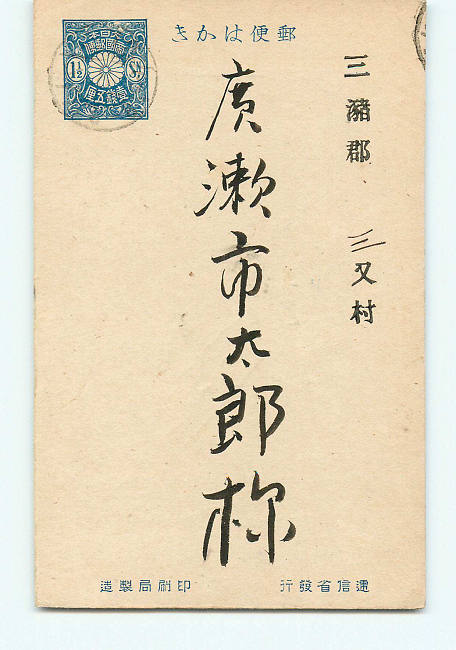 郵便はかき
大日本
帝國郵便
1½ Sn
壹錢五厘
三瀦郡 三又村
廣瀬市太郎様
遞信省發行 印刷局製造